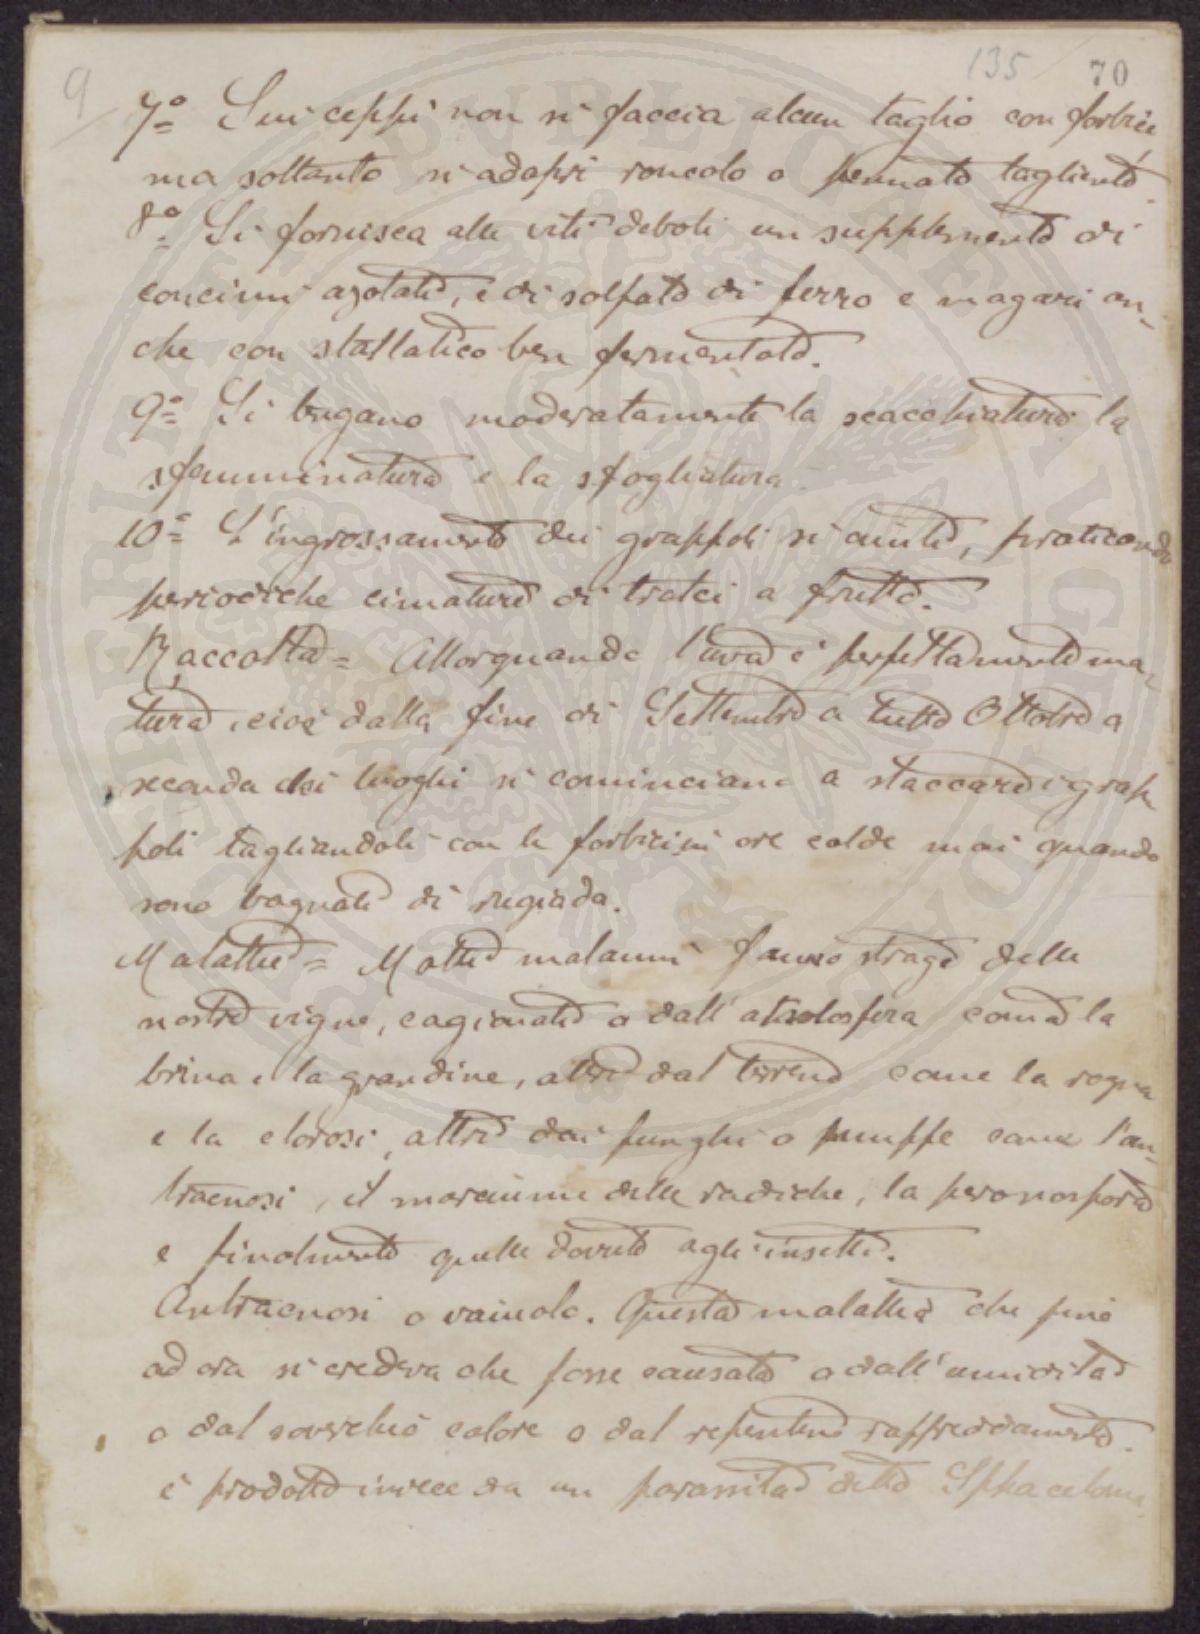 9 135 70
7º= Sui ceppi non si faccia alcun taglio con forbici
ma soltanto si adopri roncolo o pennato tagliente.
8º= Si fornisca alle viti deboli un supplemento di
concimi azotati, e di solfato di ferro e magari an-
che con stallatico ben fermentato.
9º= Si tengano moderatamente la scacchiatura la
sfemminatura e la sfogliatura
10º= L'ingrossamento dei grappoli si aiuti, praticando
periodiche cimature di tralci a frutto.
Raccolta = Allorquando l'uva è perfettamente ma-
tura, cioè dalla fine di Settembre a tutto Ottobre a
seconda dei luoghi si cominciano a staccare i grap
poli tagliandoli con le forbici in ore calde mai quando
sono bagnati di rugiada.
Malattie = Molti malanni fanno strage delle
nostre vigne, cagionati o dall'atmosfera come la
brina e la grandine, altre dal terreno come la rogna
e la clorosi, altre dai funghi o muffe come l'an-
tracnosi, il marciume delle radiche, la peronospora
e finalmente quelle dovute agli insetti.
Antracnosi o vaiuolo. Questa malattia che fino
ad ora si credeva che fosse causata o dall'umidità
o dal soverchio calore o dal repentino raffreddamento.
è prodotta invece da un parassita detto Sphaceloma
PUBLICAE AVGENDO